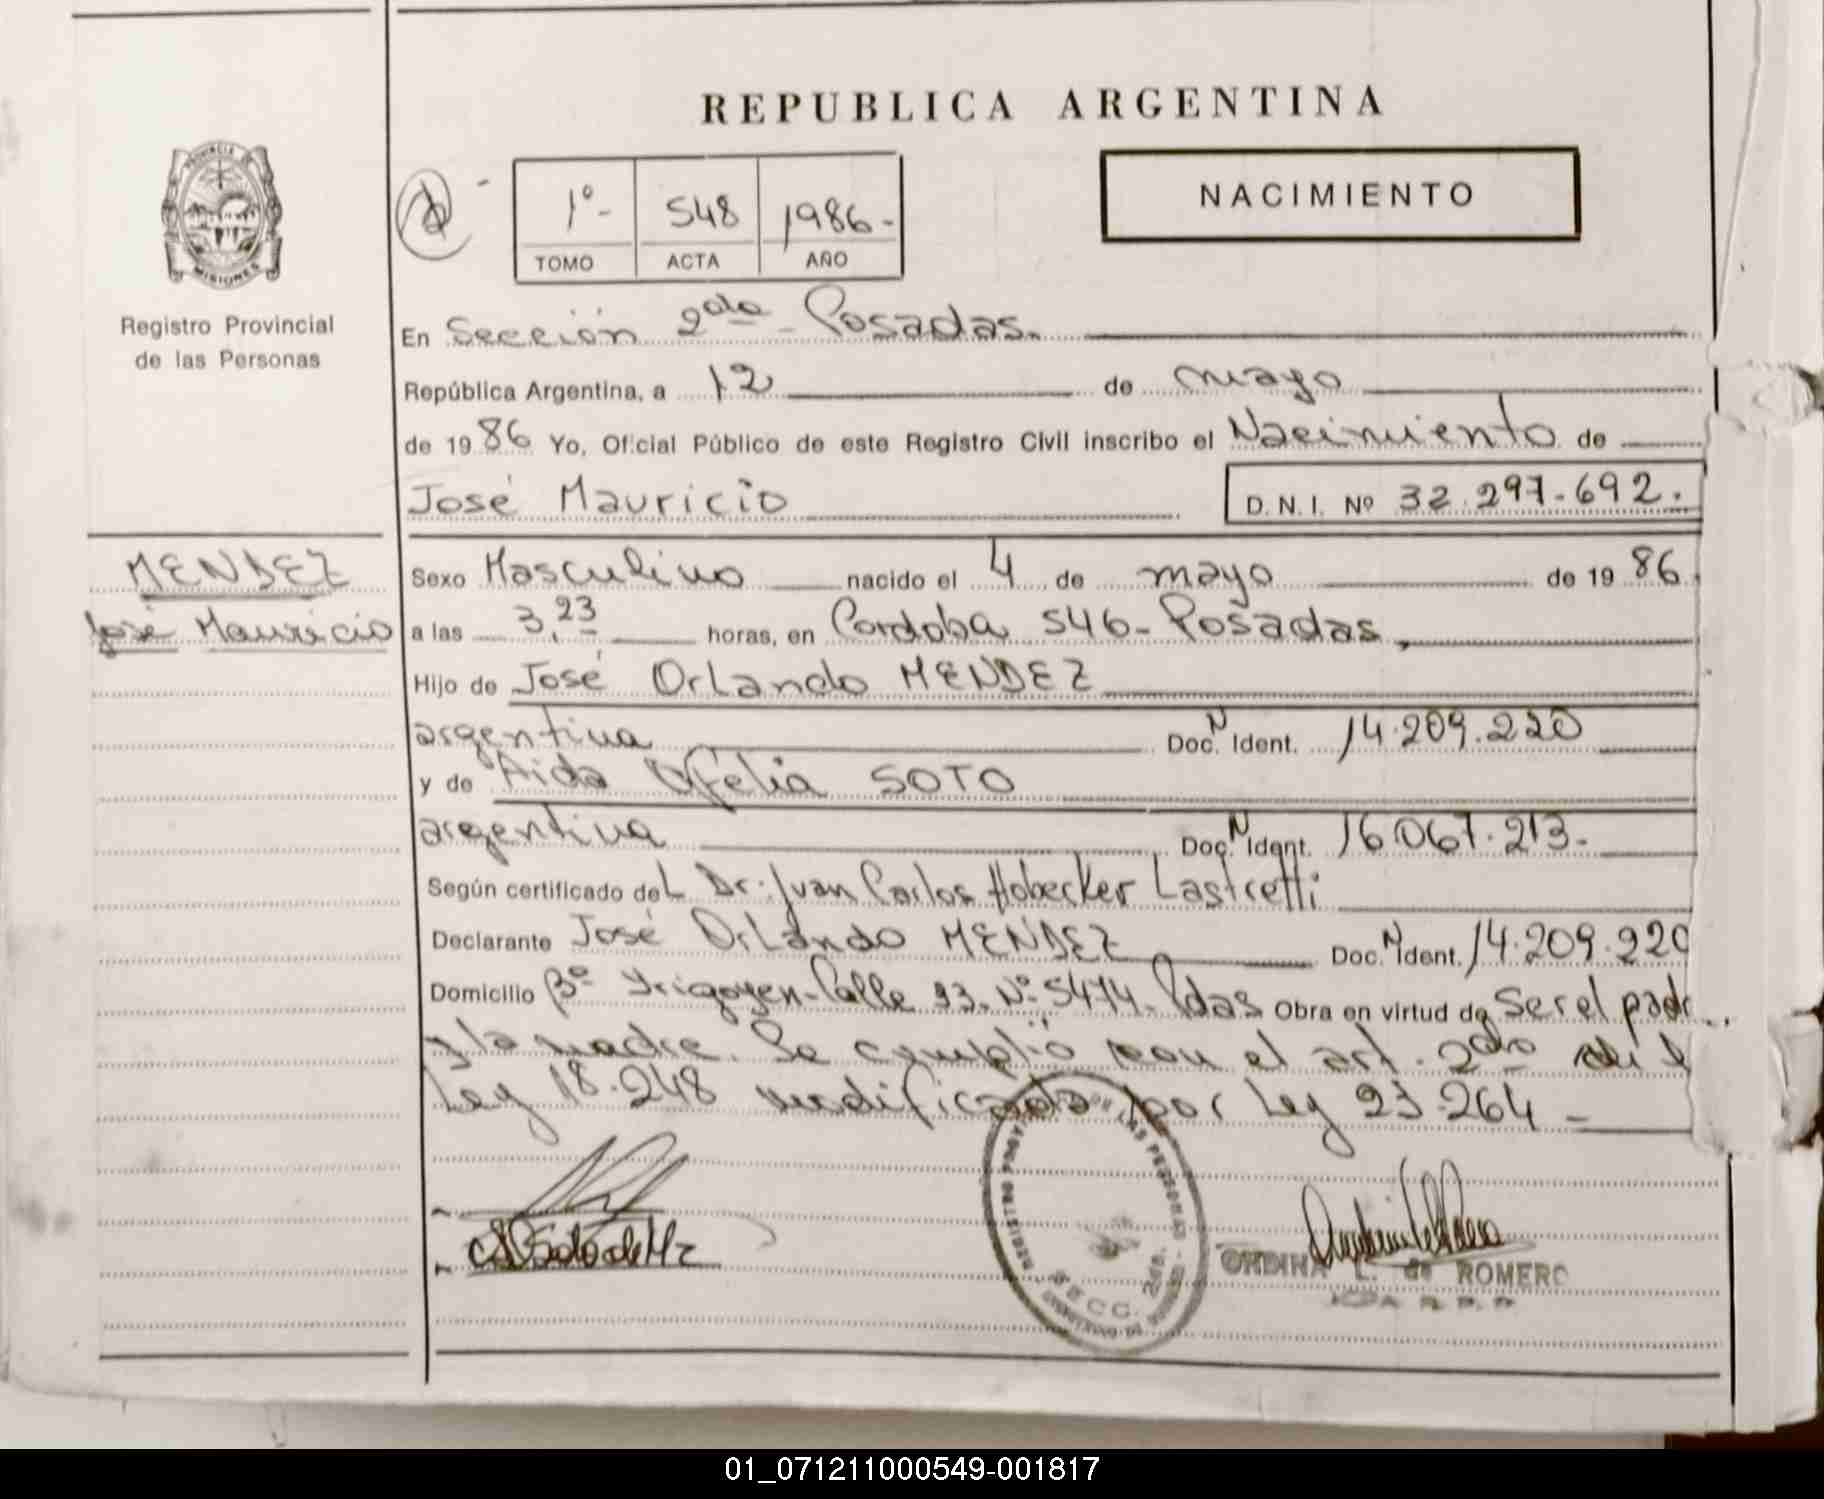 REPUBLICA ARGENTINA
NACIMIENTO
PROVINCIA DE
MISIONES
Registro Provincial
de las Personas
1º- 548 1986-
TOMO ACTA AÑO
En Sección 2da - Posadas.
República Argentina, a 12 de mayo
de 1986 Yo, Oficial Público de este Registro Civil inscribo el Nacimiento de
José Mauricio D.N.I. Nº 32.297.692.
MENDEZ
José Mauricio
Sexo Masculino nacido el 4 de mayo de 1986
a las 3,23 horas, en Cordoba 546- Posadas,
Hijo de José Orlando MENDEZ
argentina Doc. N Ident. 14.209.220
y de Aida Ofelia SOTO
argentina Doc. N Ident. 16.067.213.-
Según certificado del Dr. Juan Carlos Hobecker Lastretti
Declarante José Orlando MENDEZ Doc. N Ident. 14.209.220
Domicilio Bº Yrigoyen-Calle 93. Nº 5474- Pdas Obra en virtud de Ser el padr
y la madre. Se cumplió con el art. 2do de l
Ley 18.248 modificada por Ley 23.264 -
Soto de Mz
LAS PERSONAS
SECC. 2da.
L. de ROMERO
01_071211000549-001817